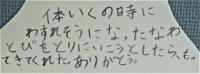 体いくの時に
わすれそうになったなわ
とびをとりにいこうとしたら、も、
てきてくれた。ありがとう。